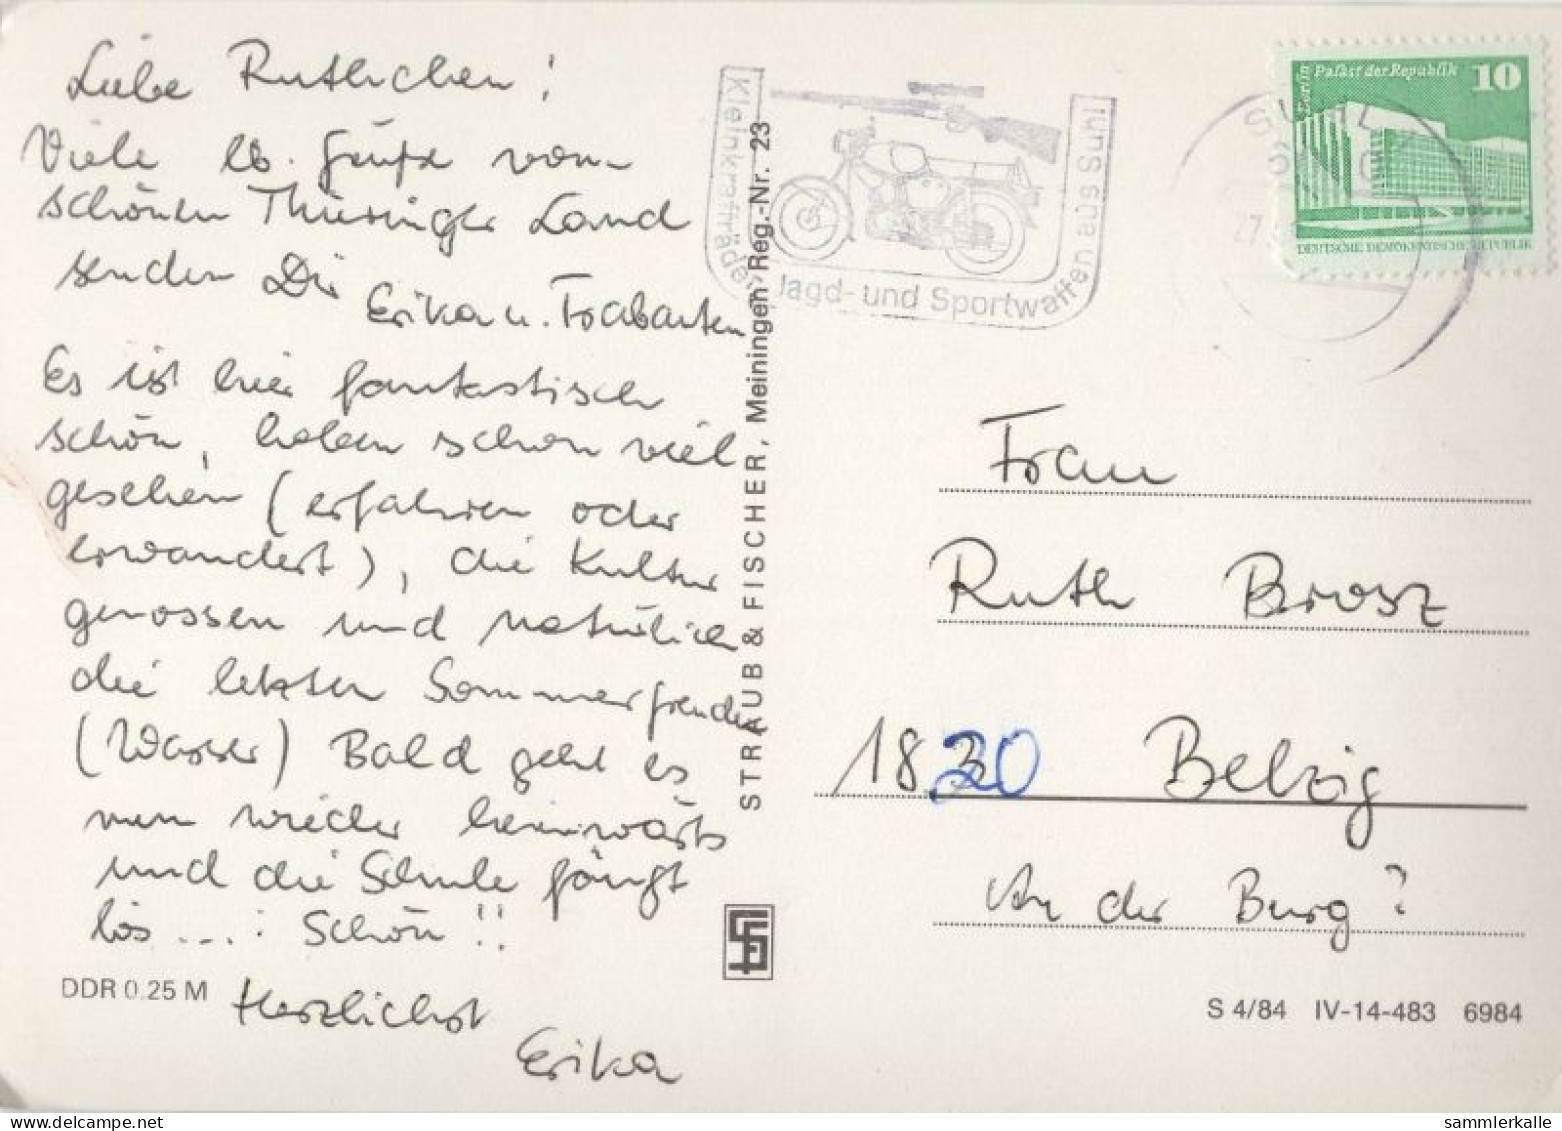 Liebe Ruthchen!
Viele lb. Grüße vom
schönen Thüringer Land
senden Dir Erika u. Trabanten
Es ist hier fantastisch
schön, haben schon viel
gesehen (erfahren oder
erwandert), die Kultur
genossen und natürlich
die letzten Sommerfreuden
(Wasser) Bald geht es
nun wieder heimwärts
und die Schule fängt
los ....: Schön!!
Herzlichst
Erika
DDR 0,25 M
STRAUB & FISCHER, Meiningen Reg.-Nr. 23
Kleinkrafträder Jagd- und Sportwaffen aus Suhl
SUHL
27.
Berlin Palast der Republik 10
DEUTSCHE DEMOKRATISCHE REPUBLIK
Frau
Ruth Brosz
1820 Belzig
An der Burg?
S 4/84 IV-14-483 6984
sammlerkalle